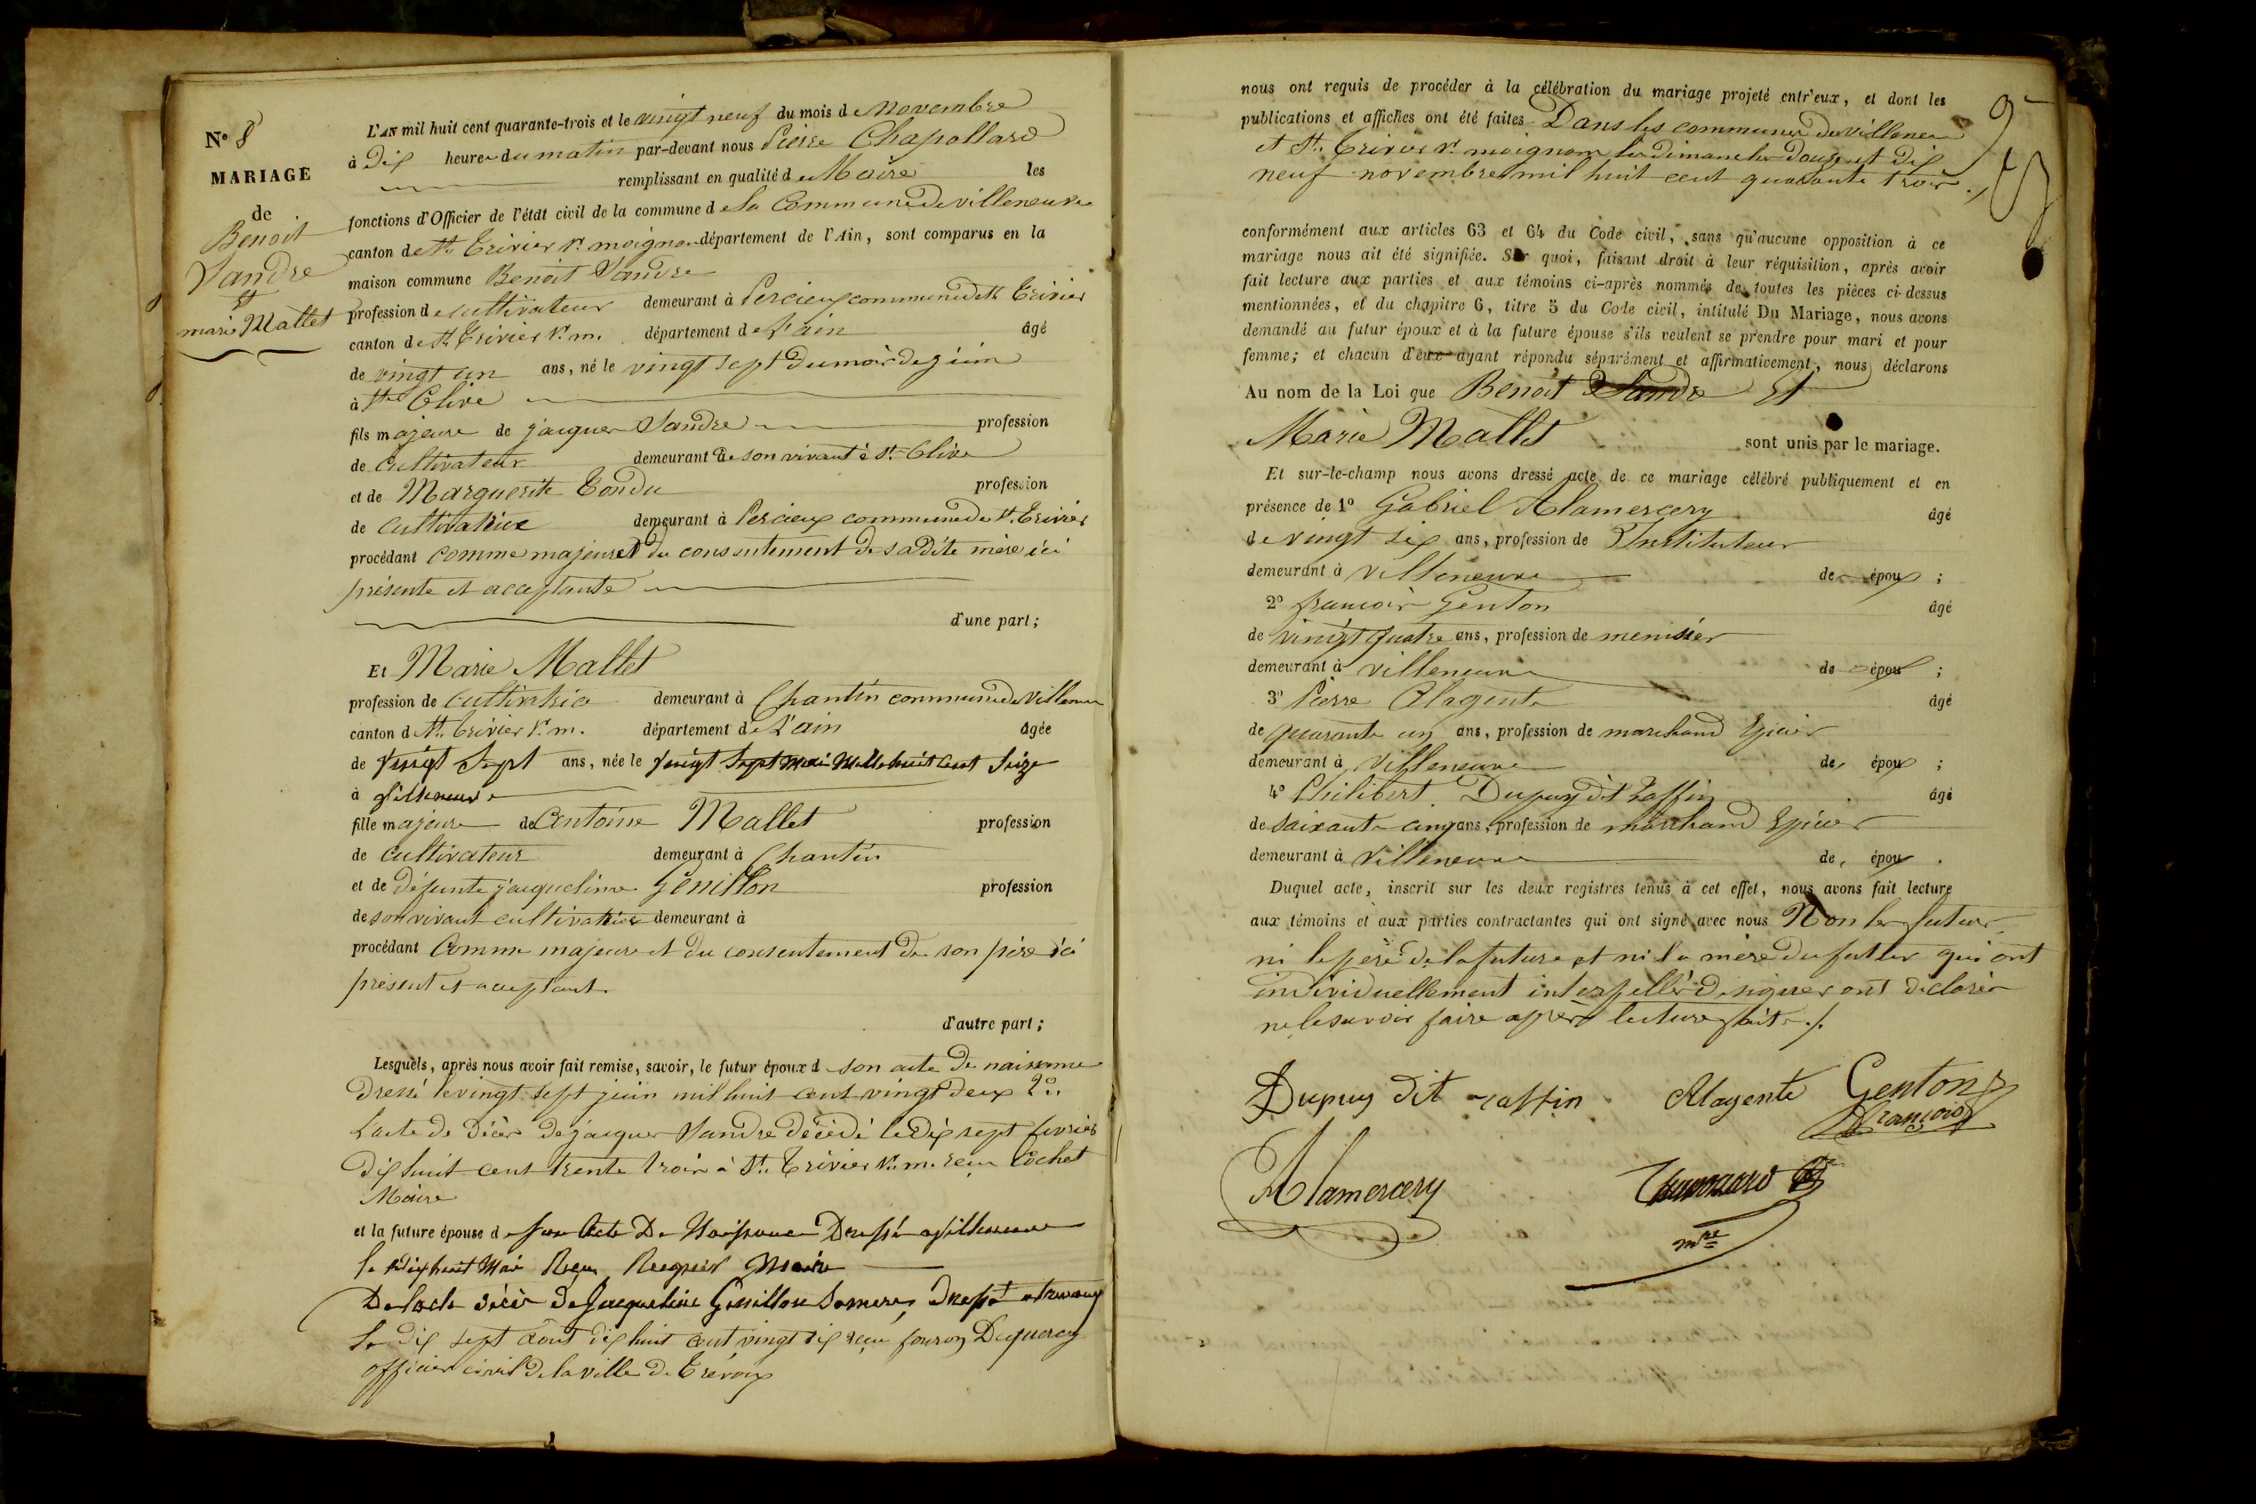 N° 8
MARIAGE
de
Benoit
Sandre
Et
marie Mallet
L'AN mil huit cent quarante-trois et le vingt neuf du mois de Novembre
à Dix heures du matin par-devant nous Pierre Chapollard
remplissant en qualité de Maire les
fonctions d'Officier de l'état civil de la commune de la Commune de villeneuve
canton de St. Trivier s. moignan département de l'Ain, sont comparus en la
maison commune Benoit Sandre
profession de cultivateur demeurant à Percieux commune de St Trivier
canton de St. Trivier s. m. département de l'ain âgé
de vingt un ans, né le vingt sept du mois de juin
à Ste Olive
fils majeure de jacques Sandre profession
de Cultivateur demeurant de son vivant à Ste Olive
et de Marguerite Tondu profession
de cultivatrice demeurant à Percieux commune de St. Trivier
procédant comme majeur et du consentement de sa dite mère ici
présente et acceptante
d'une part ;
Et Marie Mallet
profession de cultivatrice demeurant à Chantin commune de Villeneuve
canton de St. Trivier s. m. département de L'ain âgée
de vingt Sept ans, née le vingt Sept Mai Mille huit Cent Seize
à villeneuve
fille majeure de Antoine Mallet profession
de cultivateur demeurant à Chantin
et de défunte jacqueline Génillon profession
de son vivant cultivatrice demeurant à
procédant Comme majeure et du consentement de son père ici
présent et acceptant
d'autre part ;
Lesquels, après nous avoir fait remise, savoir, le futur époux d son acte de naissance
Dressé le vingt sept juin mil huit cent vingt deux 2°
L'acte de Décès de jacques Sandre décédé le dix sept fevrier
Dix huit cent trente trois à St. Trivier s. m. reçu Cochet
Maire
et la future épouse de son Acte De Naissance Dressé a villeneuve
le dix huit Mai Reçu Maire
De l'acte décès De Jacqueline Génillon Sa mere, Dressé a trevoux
le dix sept août dix huit cent vingt six reçu Duquercy
officier civil de la ville de Trévoux
nous ont requis de procéder à la célébration du mariage projeté entr'eux, et dont les
publications et affiches ont été faites Dans les communes de villeneuve
et St. Trivier s. moignan les dimanches douze et dix
neuf novembre mil huit cent quarante trois
conformément aux articles 63 et 64 du Code civil, sans qu'aucune opposition à ce
mariage nous ait été signifiée. Sur quoi, faisant droit à leur réquisition, après avoir
fait lecture aux parties et aux témoins ci-après nommés de toutes les pièces ci-dessus
mentionnées, et du chapitre 6, titre 5 du Code civil, intitulé Du Mariage, nous avons
demandé au futur époux et à la future épouse s'ils veulent se prendre pour mari et pour
femme ; et chacun d'eux ayant répondu séparément et affirmativement, nous déclarons
Au nom de la Loi que Benoit Sandre Et
Marie Mallet sont unis par le mariage.
Et sur-le-champ nous avons dressé acte de ce mariage célébré publiquement et en
présence de 1° Gabriel Alamercery âgé
de vingt six ans, profession de Instituteur
demeurant à Villeneuve de époux ;
2° francois Genton âgé
de vingt quatre ans, profession de menisier
demeurant à villeneuve de époux ;
3° Pierre Alagente âgé
de quarante un ans, profession de marchand Epicier
demeurant à Villeneuve de époux ;
4° Philibert Dupuy dit Raffin âgé
de Soixante cinq ans, profession de marchand Epicier
demeurant à Villeneuve de époux .
Duquel acte, inscrit sur les deux registres tenus à cet effet, nous avons fait lecture
aux témoins et aux parties contractantes qui ont signé avec nous Non les futurs
ni le père de la future et ni la mère du futur qui ont
individuellement interpellés de signer ont déclarés
ne le savoir faire après lecture faite ./.
Dupuy dit raffin Alagente Genton
François
Alamercery
mre